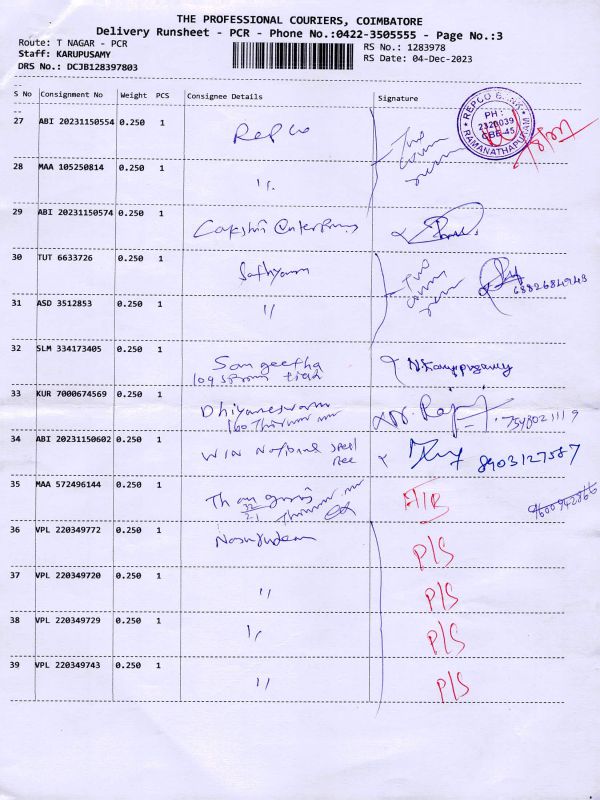 THE PROFESSIONAL COURIERS, COIMBATORE
Delivery Runsheet - PCR - Phone No.:0422-3505555 - Page No.:3
Route: T NAGAR - PCR
RS No.: 1283978
Staff: KARUPUSAMY
RS Date: 04-Dec-2023
DRS No.: DCJB128397803
S No Consignment No Weight PCS Consignee Details Signature
27 ABI 20231150554 0.250 1 Repco
REPCO BANK
PH :
2320039
CBE-45
RAMANATHAPURAM
28 MAA 105250814 0.250 1 "
29 ABI 20231150574 0.250 1 Lakshmi Enterprises
30 TUT 6633726 0.250 1 Sathyam
31 ASD 3512853 0.250 1 "
32 SLM 334173405 0.250 1 Sangeetha N.Karuppusamy
33 KUR 7000674569 0.250 1 Dhiyaneswaran
34 ABI 20231150602 0.250 1 WIN National 8903127587
35 MAA 572496144 0.250 1
36 VPL 220349772 0.250 1 P/S
37 VPL 220349720 0.250 1 " P/S
38 VPL 220349729 0.250 1 " P/S
39 VPL 220349743 0.250 1 " P/S